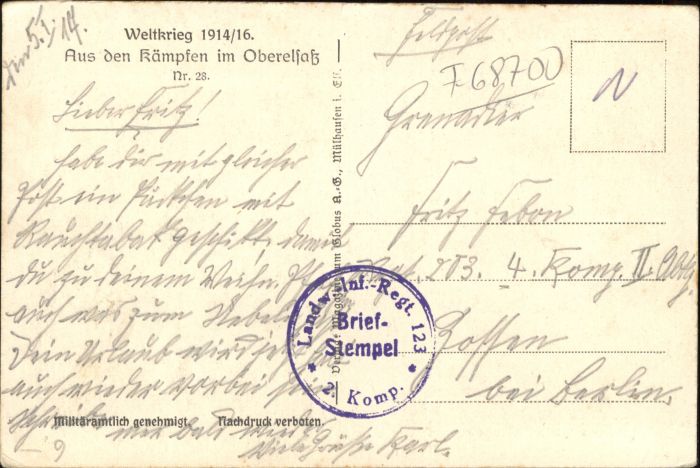 den 5.I.14.
Weltkrieg 1914/16.
Aus den Kämpfen im Oberelsaß
Nr. 28.
Lieber Fritz!
habe dir mit gleicher
Post ein Päckchen mit
Rauchtabak geschickt, damit
du zu deinem Weihn.
auch was zum
Dein Urlaub wird jetzt
auch wieder vorbei sein
Schreib mir bald wieder
Viele Grüße Karl.
Militäramtlich genehmigt. Nachdruck verboten.
Globus A.-G., Mülhausen i. Els.
Landw. Inf.-Regt. 123
Brief-
Stempel
* 2. Komp. *
Feldpost
I 68700
N
Grenadier
Fritz
Regt. 203. 4. Komp. II.
Zossen
bei Berlin.